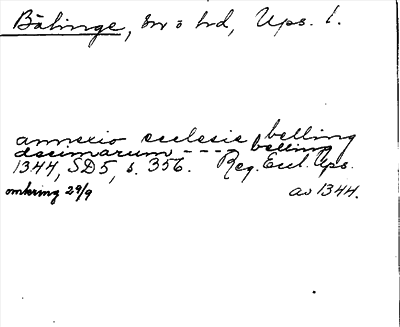 Bälinge, sn o hd, Ups. l.
annexio ecclesie belling
decimarum --- belling
1344, SD5, s. 356. Reg. Eccl. Ups.
omkring 29/9 av 1344.